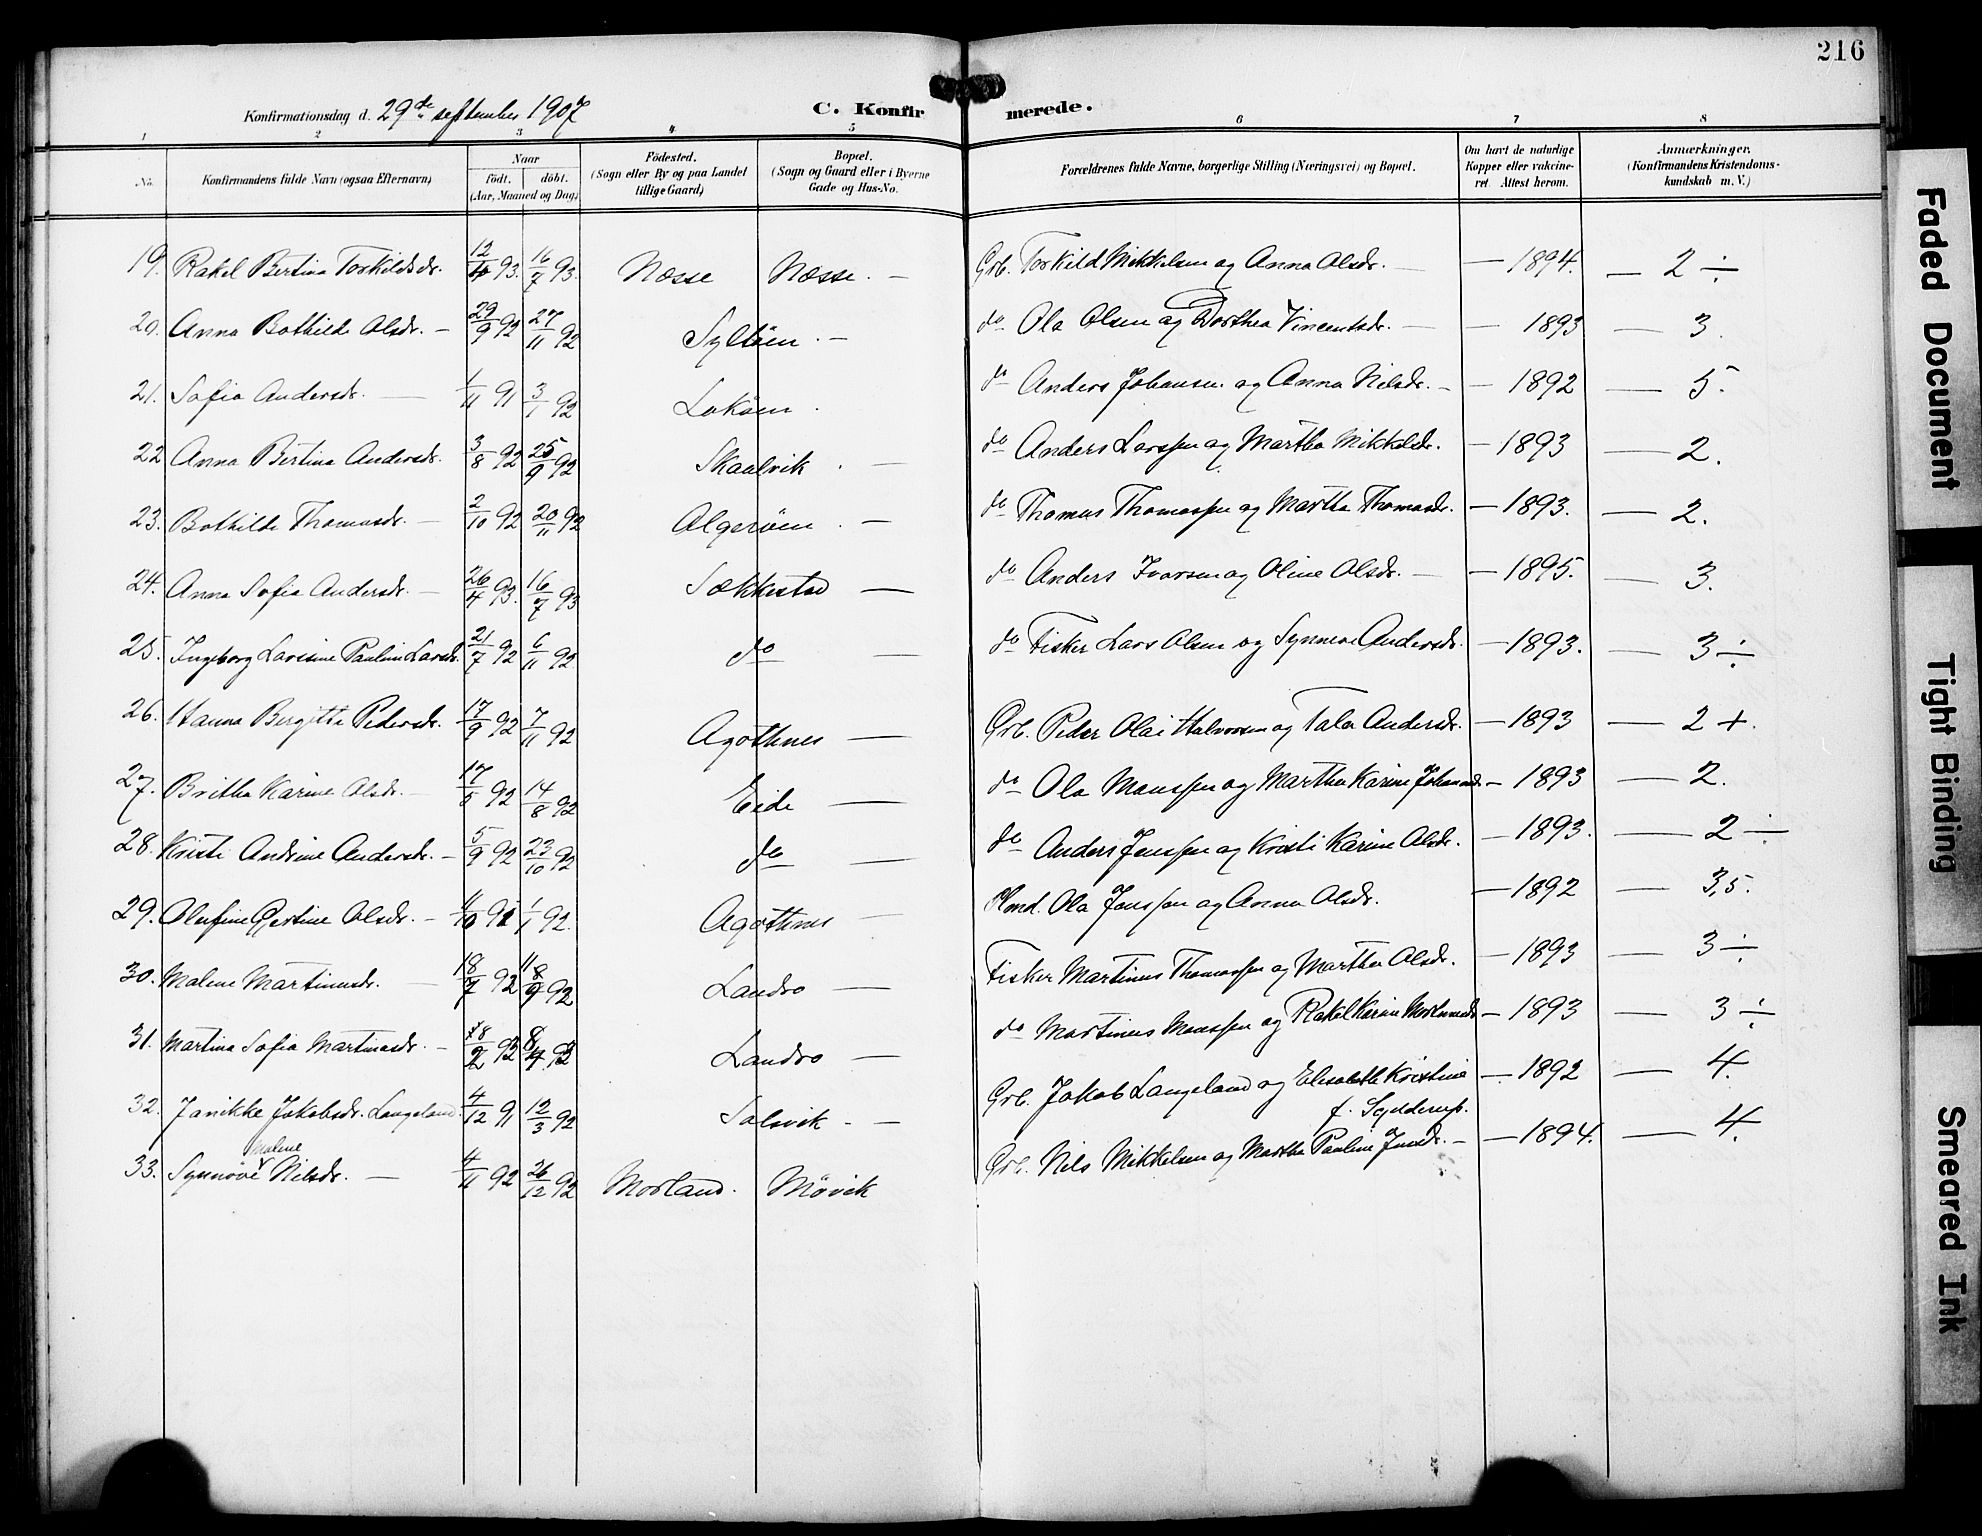 216
Konfirmationsdag d. 29de september 1907
C. Konfirmerede.
1 2 3 4 5 6 7 8
No. Konfirmandens fulde Navn (ogsaa Efternavn) Naar födt. döbt. (Aar, Maaned og Dag) Födested. (Sogn eller By og paa Landet tillige Gaard) Bopæl. (Sogn og Gaard eller i Byerne Gade og Hus-No. Forældrenes fulde Navne, borgerlige Stilling (Næringsvei) og Bopæl. Om havt de naturlige Kopper eller vakcineret. Attest herom. Anmærkninger. (Konfirmandens Kristendomskundskab m. V.)
19. Rakel Bertina Torkildsdr. 12/4 93. 16/7 93. Næsse Næsse. — Grb. Torkild Mikkelsen og Anna Olsdr. — — 1894. — 2 ÷
20. Anna Bothild Olsdr. — 29/9 92 27/11 92 Syltöen. — do Ola Olsen og Dorthea Vincentsdr. — — 1893 — 3.
21. Sofia Andersdr. — 1/11 91 3/1 92 Loköen. do Anders Johansen og Anna Nilsdr. — — 1892 — 5.
22 Anna Bertina Andersdr. 3/8 92 25/9 92 Skaalvik. — do Anders Larssen og Martha Mikkelsdr. — 1893 — 2.
23. Bothilde Thomasdr. — 2/10 92 20/11 92 Algeröen. — do Thomas Thomassen og Martha Thomasdr. — 1893. — 2.
24. Anna Sofia Andersdr. — 26/4 93. 16/7 93 Sækkestad — do Anders Ivarsen og Oline Olsdr. — — 1895. — 3.
25. Ingeborg Larsine Pauline Larsdr. 21/7 92 6/11 92 do — do Fisker Lars Olsen og Synneve Andersdr. — 1893. — 3 ÷
26. Hanna Bergitta Pedersdr. 17/9 92 7/11 92 Agothnes — Grb. Peder Olai Halvorsen og Tala Andersdr. — 1893 — 2 +.
27. Britha Karine Olsdr. — 17/5 92 14/8 92 Eide — do Ola Monssen og Martha Karine — 1893 — 2.
28. Kristi Andrine Andersdr. — 5/9 92 23/10 92 do — do Anders Jenssen og Kristi Karine Olsdr. — 1893. — 2 ÷
29. Olufine Olsdr. — 10 91 1/1 92. Agothnes — Ola Jenssen og Anna Olsdr. — 1892 — 3,5.
30. Malene Martinusdr. — 18/7 92 92 Landro — Fisker Martinus Thomassen og Martha Olsdr. — 1893 — 3 ÷
31. Martina Sofia Martinusdr. — Landro — do Martinus Monssen og Rakel Karine — 1893 — 3 ÷
32. Janikke Jakobsdr. Langeland. 4/12 91 12/3 92 Solsvik. — Grb. Jakob Langeland og Elisabeth Kristine — 1892 — 4.
f. Sylderup.
Malene
33. Synnöve Nilsdr. — 4/11 92 26/12 92 Morland. Mövik Grb. Nils Mikkelsen og Martha Pauline Jensdr. — — 1894. — 4.
Faded Document
Tight Binding
Smeared Ink